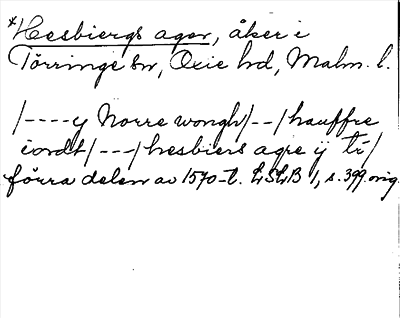 *Hesbiergs ager, åker i
Törringe sn, Oxie hd, Malm. l.
/----y Norre wongh/--/hauffre
iordt/---/hesbiers agre ÿ tí/
förra delen av 1570-t. LSLB 1, s. 399 orig.